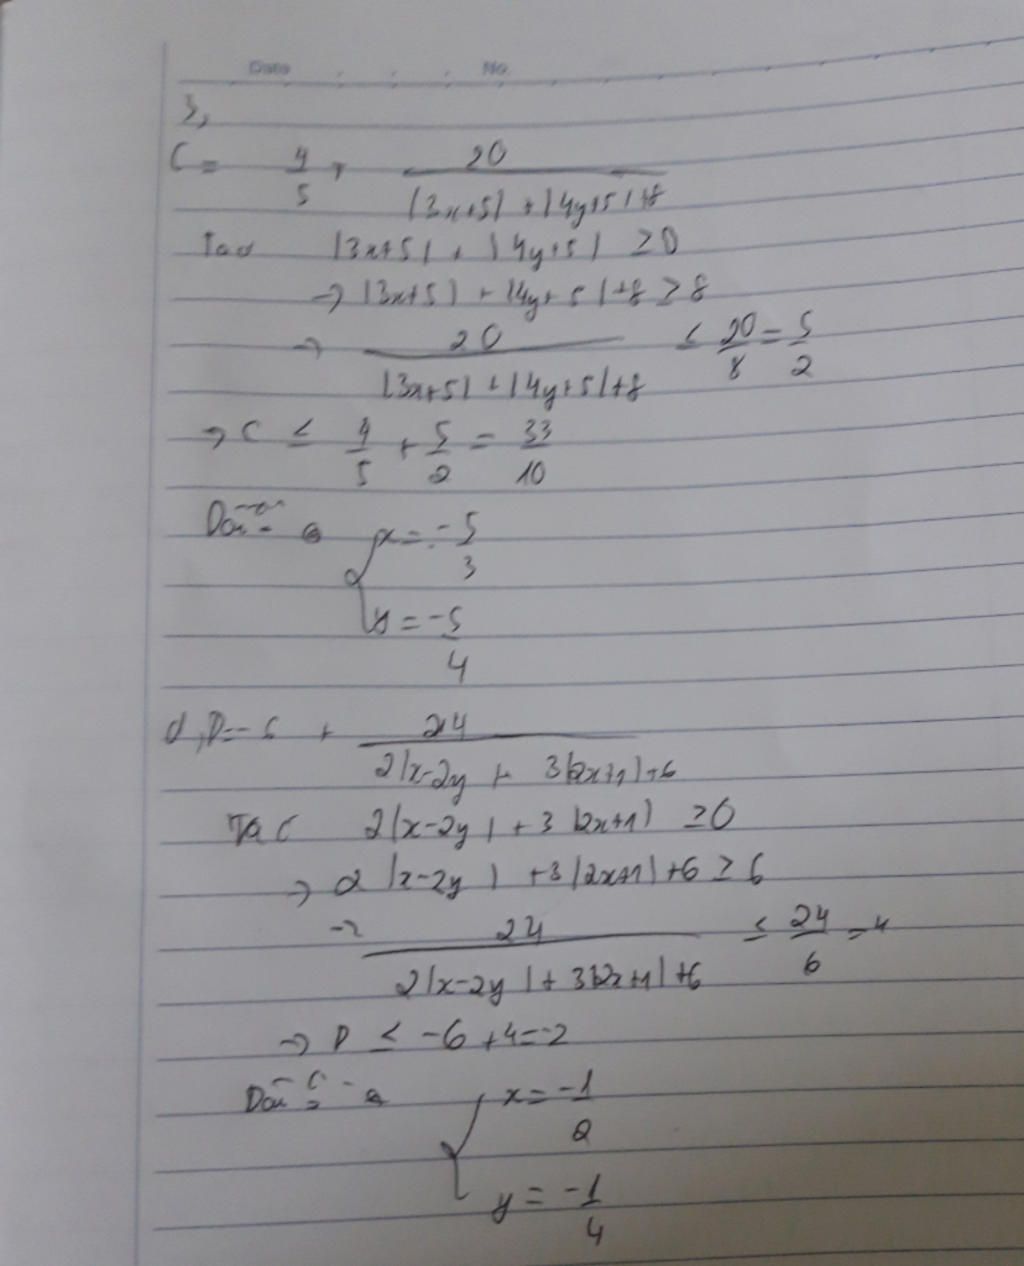 Date No.
3,
C = 4/5 + 20/(|3x+5| + |4y+5| +8)
Ta có |3x+5| + |4y+5| ≥0
→ |3x+5| + |4y+5| +8 ≥ 8
→ 20/(|3x+5| + |4y+5| +8) ≤ 20/8 = 5/2
→ C ≤ 4/5 + 5/2 = 33/10
Dấu "="
x = -5/3
y = -5/4
d, D = -6 + 24/(2|x-2y| + 3|2x+1| +6)
Ta c 2|x-2y| + 3|2x+1| ≥0
→ 2|x-2y| + 3|2x+1| +6 ≥ 6
→ 24/(2|x-2y| + 3|2x+1| +6) ≤ 24/6 = 4
→ D ≤ -6 + 4 = -2
Dấu "="
x = -1/2
y = -1/4